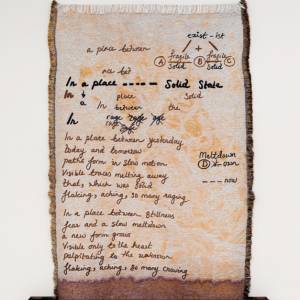 exist - ist
a place between
+
fragile fragile
Solid Solid
A B C
nce bet
In a place ----- Solid State
In a place Solid
In between the
In rage rage
rage
In a place between yesterday
today and tomorrow
paths form in slow motion
Visible traces melting away
that, which was solid
flaking, aching, so many raging
Meltdown
D
own
--- now
In a place between stillness
fear and a slow meltdown
a new form grows
Visible only to the heart
palpitating to the unknown
flaking, aching, so many craving